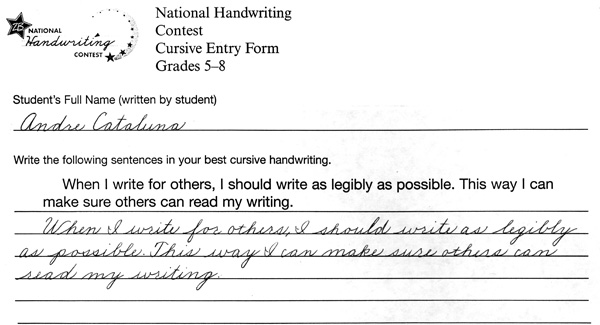 ZB
NATIONAL
Handwriting
CONTEST
National Handwriting
Contest
Cursive Entry Form
Grades 5–8
Student's Full Name (written by student)
Andre Cataluna
Write the following sentences in your best cursive handwriting.
When I write for others, I should write as legibly as possible. This way I can
make sure others can read my writing.
When I write for others, I should write as legibly
as possible. This way I can make sure others can
read my writing.